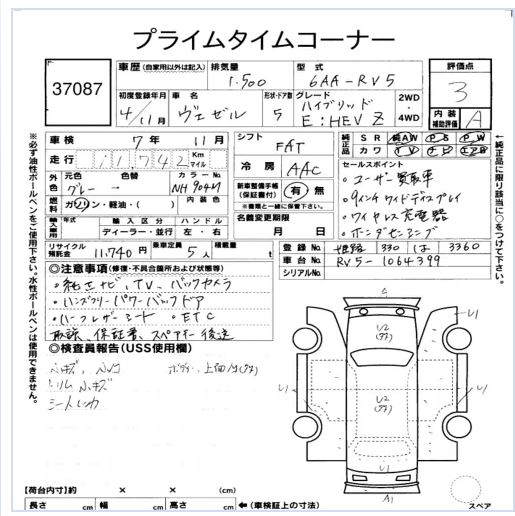 プライムタイムコーナー
37087
車歴 (自家用以外は記入) 排気量 型式
1.500 6AA-RV5
初度登録年月 車名 形状・ドア数 グレード 2WD・4WD
4/11月 ヴェゼル 5 ハイブリッド E:HEV Z
評価点
3
内装補助評価 A
車検 7年 11月
走行 11,742 Km マイル
外色 元色 色替 カラーNo.
グレー → NH904M
燃料 ガソリン・軽油・( ) 内装色
輸入車用 年式 輸入区分 ハンドル
ディーラー・並行 左・右
リサイクル預託金 11,740円 乗車定員 5人 積載量 t
シフト FAT
冷房 AAC
新車整備手帳(保証書付) 有・無
※書類と一緒に保管して下さい。
名義変更期限
月 日
純正品 SR 純AW PS PW
カワ TV
セールスポイント
・ユーザー買取車
・9インチワイドディスプレイ
・ワイヤレス充電器
・ホンダセンシング
登録No. 姫路 330 は 3360
車台No. RV5-1064399
シリアルNo.
※必ず油性ボールペンをご使用下さい。水性ボールペンは使用できません。
←純正品に限り該当に○をつけて下さい。
◎注意事項(修復・不具合箇所および状態等)
・純正ナビ、TV、バックカメラ
・ハンズフリーパワーバックドア
・ハーフレザーシート ・ETC
取説、保証書、スペアキー後送
◎検査員報告(USS使用欄)
小キズ、
リム小キズ
A
U2
U2
U1
U1
U1
A1
スペア
【荷台内寸】約 × × (cm)
長さ cm 幅 cm 高さ cm ←(車検証上の寸法)